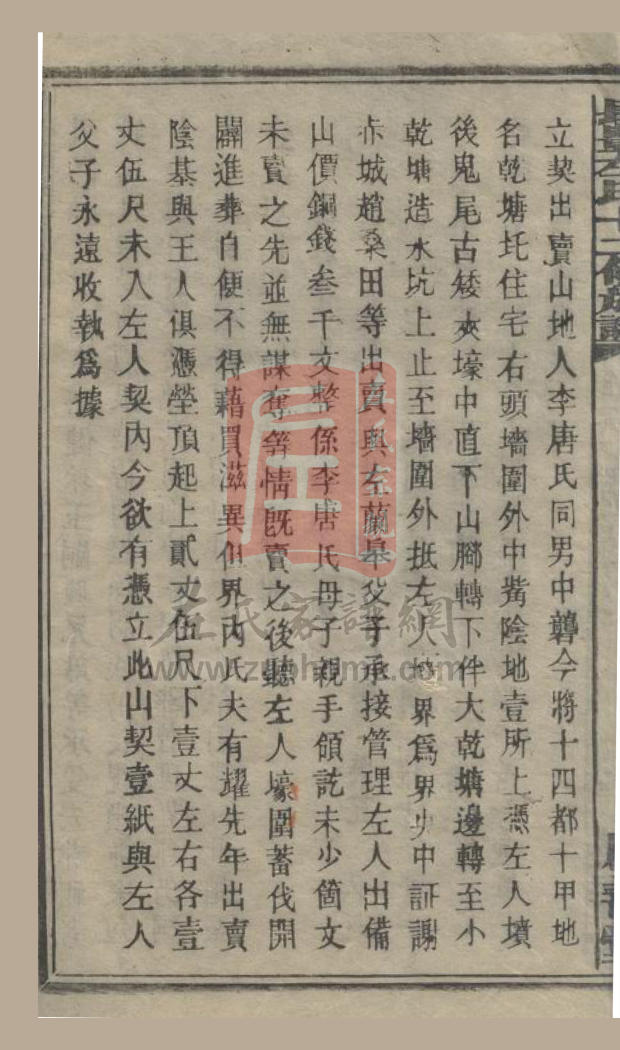 立契出賣山地人李唐氏同男中聾今將十四都十甲地
名乾塘圫住宅右頭墻圍外中嘴陰地壹所上憑左人墳
後鬼尾古矮夾壕中直下山腳轉下件大乾塘邊轉至小
乾塘造水坑上止至墻圍外抵左人 界爲界少中証謝
赤城趙桑田等出賣與左蘭臯父子承接管理左人出備
山價銅錢叁千文整係李唐氏母子親手領訖未少箇文
未賣之先並無謀奪等情旣賣之後聽左人壕圍蓄伐開
闢進葬自便不得藉買滋異但界內氏夫有耀先年出賣
陰基與王人俱憑塋頂起上貳丈伍尺下壹丈左右各壹
丈伍尺未入左人契內今欲有憑立此山契壹紙與左人
父子永遠收執爲據
左氏家譜網
www.zuphome.com